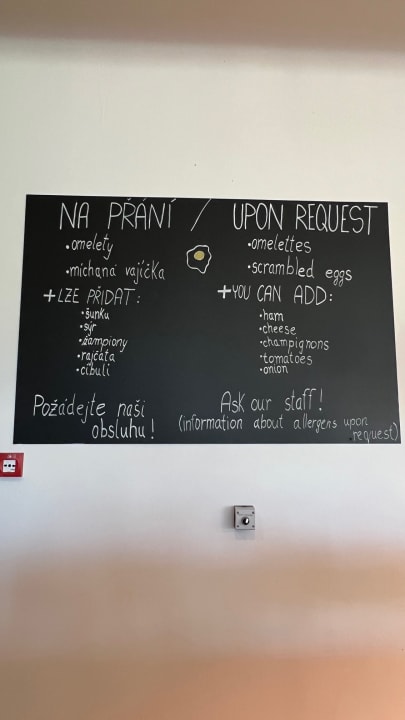 NA PŘÁNÍ / UPON REQUEST
• omelety
• míchaná vajíčka
+ LZE PŘIDAT:
• šunku
• sýr
• žampiony
• rajčata
• cibuli
Požádejte naši
obsluhu!
• omelettes
• scrambled eggs
+ YOU CAN ADD:
• ham
• cheese
• champignons
• tomatoes
• onion
Ask our staff!
(information about allergens upon
request)